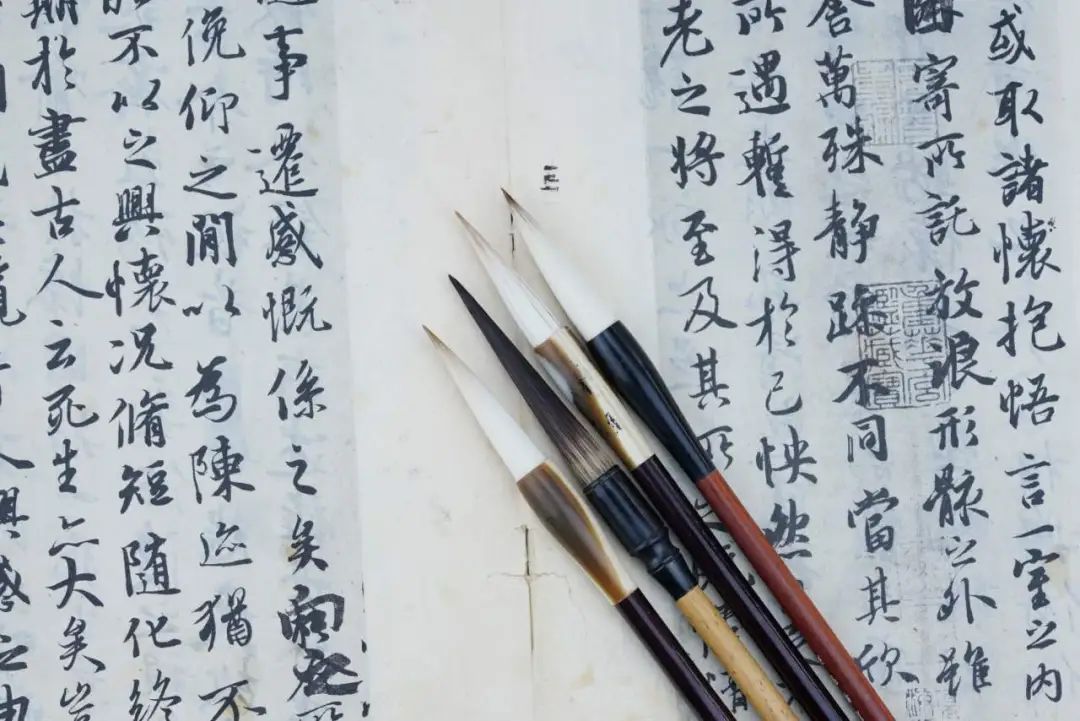 或取諸懷抱悟言一室之内
因寄所託放浪形骸之外雖
舍萬殊静躁不同當其欣
所遇暫得於己怏然
老之將至及其所
事遷感慨係之矣向之所
俛仰之閒以為陳迹猶不
不以之興懷況脩短随化終
期於盡古人云死生亦大矣豈
人興感之由